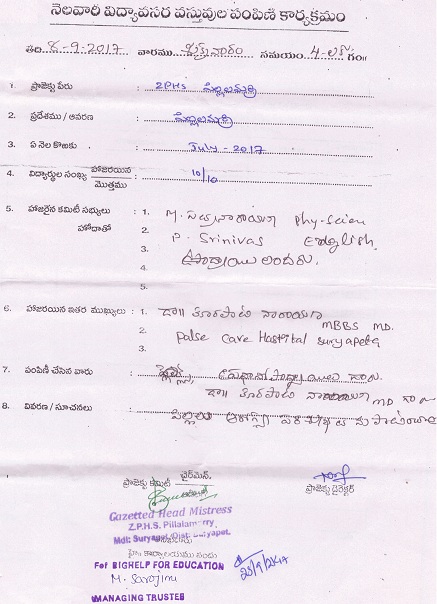 నెలవారి విద్యావసర వస్తువుల పంపిణి కార్యక్రమం
తేది 8-9-2017 వారము శుక్రవారం సమయం 4-00 గం॥
1. ప్రాజెక్టు పేరు : ZPHS పిల్లలమర్రి
2. ప్రదేశము / ఆవరణ : పిల్లలమర్రి
3. ఏ నెల కొఱకు : July - 2017
4. విద్యార్థుల సంఖ్య హాజరయిన / మొత్తము : 10/10
5. హాజరైన కమిటీ సభ్యులు : 1. M. సత్యనారాయణ Phy-Scien
హోదాతో 2. P. Srinivas English.
3. ఉపాధ్యాయులు అందరు.
4.
5.
6. హాజరయిన ఇతర ముఖ్యులు : 1. డా॥ నారాయణ
2. MBBS MD.
3. Pulse Care Hospital Suryapeta
7. పంపిణీ చేసిన వారు :
డా॥ MD గారు
8. వివరణ / సూచనలు : పిల్లలు
ఛైర్మెన్,
ప్రాజెక్టు కమిటీ
ప్రాజెక్టు డైరెక్టర్
Gazetted Head Mistress
Z.P.H.S. Pillalamarry
Mdl: Suryapet, Dist: Suryapet.
For BIGHELP FOR EDUCATION
M. Sarojini
MANAGING TRUSTEE
25/9/2017